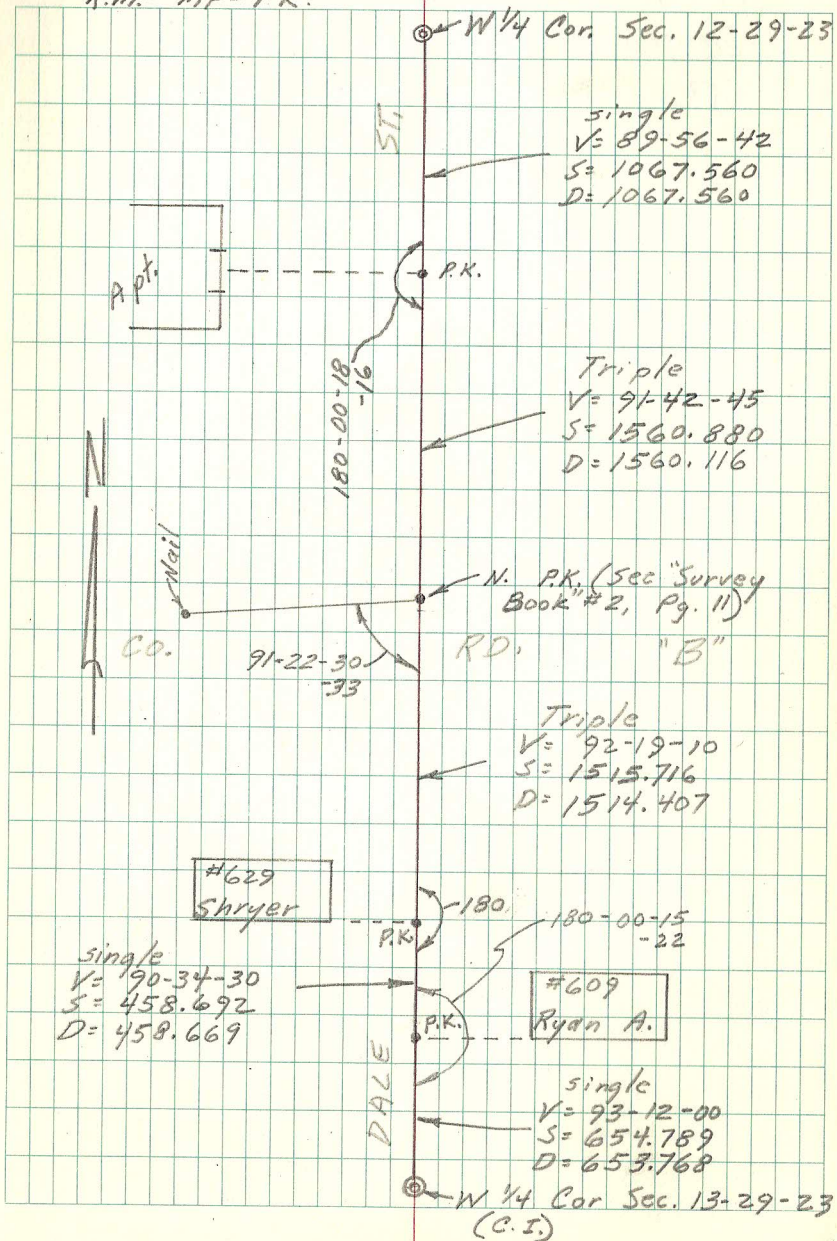 W 1/4 Cor. Sec. 12-29-23
ST.
single
V= 89-56-42
S= 1067.560
D= 1067.560
Apt.
P.K.
180-00-18
-16
Triple
V= 91-42-45
S= 1560.880
D= 1560.116
N
Nail
N. P.K. (See "Survey
Book" #2, Pg. 11)
CO.
RD.
"B"
91-22-30
-33
Triple
V= 92-19-10
S= 1515.716
D= 1514.407
#629
Shryer
180
P.K.
180-00-15
-22
single
V= 90-34-30
S= 458.692
D= 458.669
#609
Ryan A.
P.K.
DALE
single
V= 93-12-00
S= 654.789
D= 653.768
W 1/4 Cor Sec. 13-29-23
(C.I.)